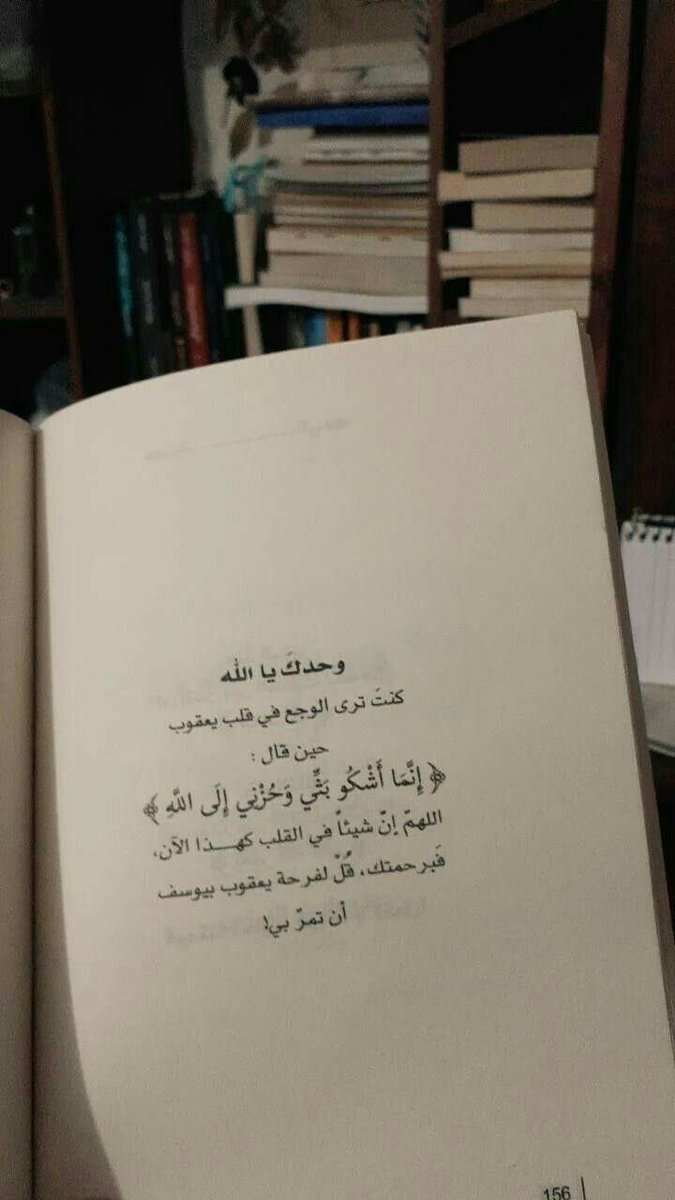 وحدكَ يا الله
كنتَ ترى الوجع في قلب يعقوب
حين قال :
﴿ إِنَّمَا أَشْكُو بَثِّي وَحُزْنِي إِلَى اللَّهِ ﴾
اللهمّ إنّ شيئاً في القلب كهـــذا الآن،
فَبرحمتك، قُلْ لفرحة يعقوب بيوسف
أن تمرّ بي!
156